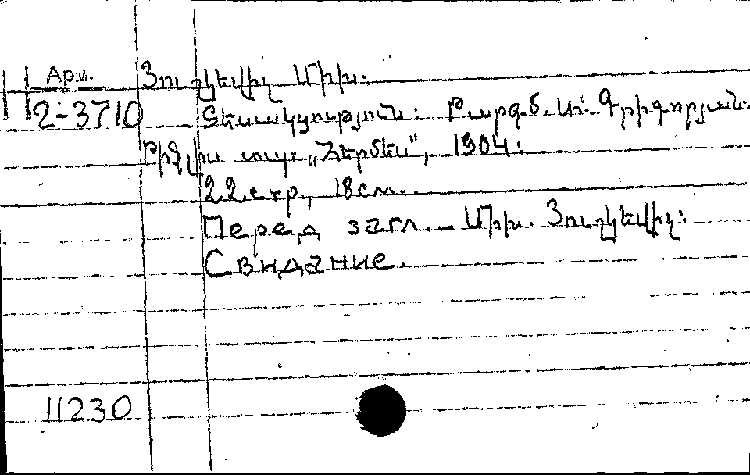 Арм. Յուշկեվիչ Միխ.
2-3710 Տեսակցություն: Թարգմ. Ա. Գրիգորյան.
Թիֆլիս տպ. „Հերմես", 1904:
22 стр, 18см.
Перед загл. Միխ. Յուշկեվիչ:
Свидание.
11230